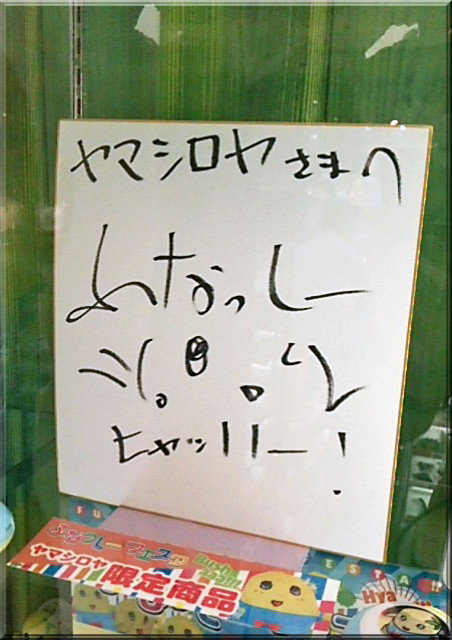 ヤマシロヤさまへ
ふなっしー
ヒャッハー!
ふなっしーフェスタ
ヤマシロヤ 限定商品
Hya